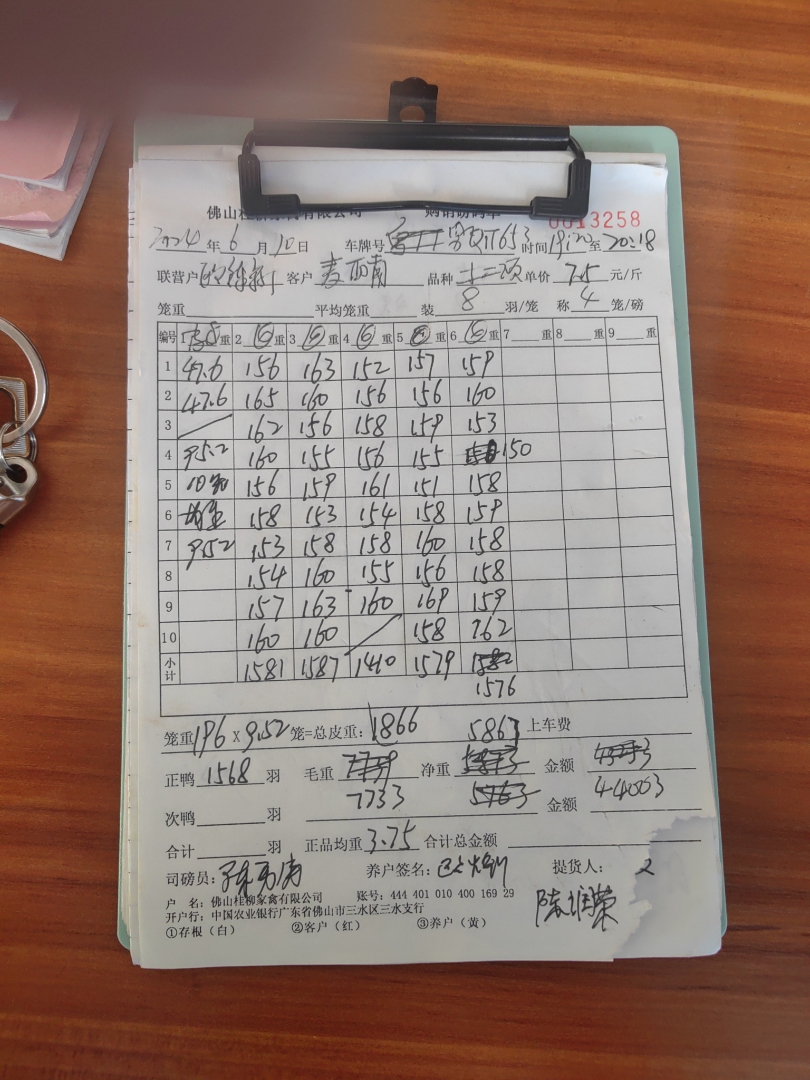 佛山桂柳家禽有限公司 购销磅码单 0013258
2024年6月10日 车牌号 粤QJT653 时间 至20:18
联营户 客户 麦 品种 十二项 单价 7.5 元/斤
笼重 平均笼重 装 8 羽/笼 称 4 笼/磅
编号 1 重 2 重 3 重 4 重 5 重 6 重 7 重 8 重 9 重
1 47.6 156 163 152 157 159
2 47.6 165 160 156 156 160
3 162 156 158 159 153
4 95.2 160 155 156 155 150
5 10 156 159 161 151 158
6 158 153 154 158 159
7 95.2 153 158 158 160 158
8 154 160 155 156 158
9 157 163 160 169 159
10 160 160 158 162
小计 1581 1587 1410 1579
1576
笼重 196 X 9.52 笼=总皮重: 1866 5867 上车费
正鸭 1568 羽 毛重 净重 金额
7733 44003
次鸭 羽 金额
合计 羽 正品均重 3.75 合计总金额
司磅员: 养户签名: 提货人:
陈维荣
户 名: 佛山桂柳家禽有限公司 账号: 444 401 010 400 169 29
开户行: 中国农业银行广东省佛山市三水区三水支行
①存根(白) ②客户(红) ③养户(黄)